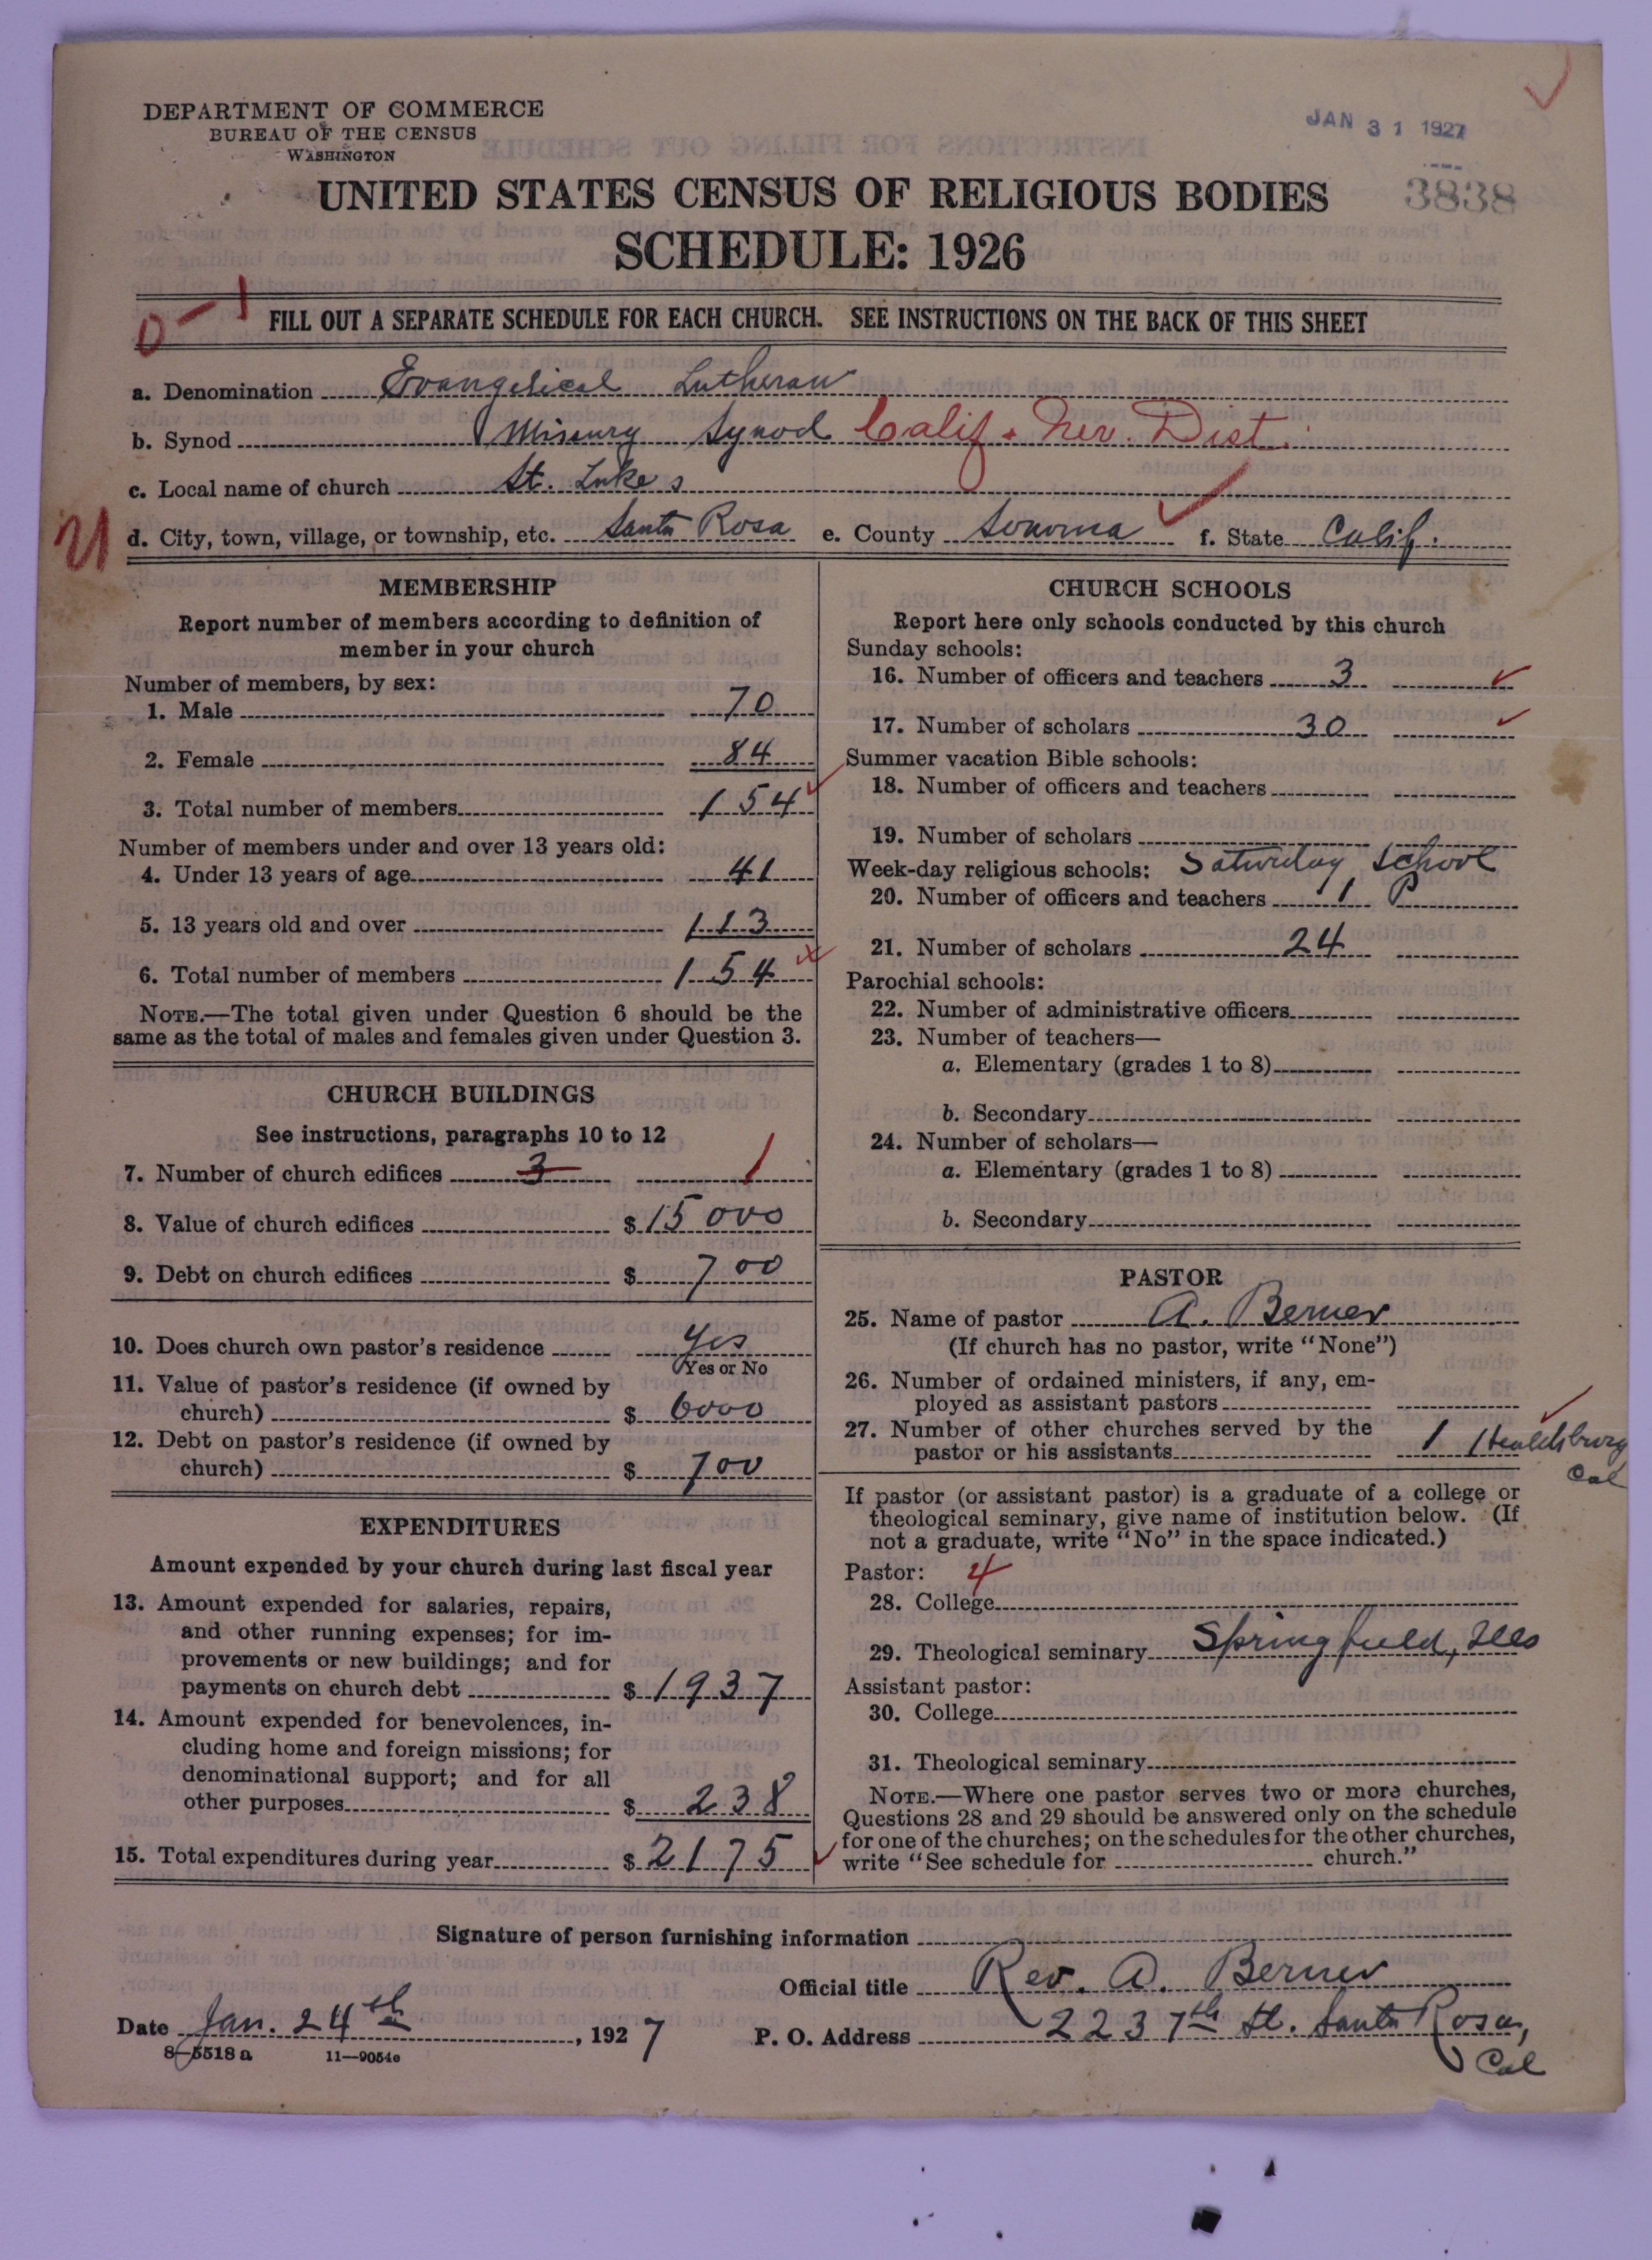 DEPARTMENT OF COMMERCE
BUREAU OF THE CENSUS
WASHINGTON
JAN 31 1927
3838
UNITED STATES CENSUS OF RELIGIOUS BODIES
SCHEDULE: 1926
FILL OUT A SEPARATE SCHEDULE FOR EACH CHURCH. SEE INSTRUCTIONS ON THE BACK OF THIS SHEET
a. Denomination Evangelical Lutheran
b. Synod Missury Synod Calif. Nev. Dist.
c. Local name of church St. Lukes
d. City, town, village, or township, etc. Santa Rosa e. County Sonoma f. State Calif.
MEMBERSHIP
Report number of members according to definition of
member in your church
Number of members, by sex:
1. Male 70
2. Female 84
3. Total number of members 154
Number of members under and over 13 years old:
4. Under 13 years of age 41
5. 13 years old and over 113
6. Total number of members 154
NOTE.—The total given under Question 6 should be the
same as the total of males and females given under Question 3.
CHURCH BUILDINGS
See instructions, paragraphs 10 to 12
7. Number of church edifices 3 1
8. Value of church edifices $ 15000
9. Debt on church edifices $ 700
10. Does church own pastor's residence Yes
Yes or No
11. Value of pastor's residence (if owned by
church) $ 6000
12. Debt on pastor's residence (if owned by
church) $ 700
EXPENDITURES
Amount expended by your church during last fiscal year
13. Amount expended for salaries, repairs,
and other running expenses; for im-
provements or new buildings; and for
payments on church debt $ 1937
14. Amount expended for benevolences, in-
cluding home and foreign missions; for
denominational support; and for all
other purposes $ 238
15. Total expenditures during year $ 2175
CHURCH SCHOOLS
Report here only schools conducted by this church
Sunday schools:
16. Number of officers and teachers 3
17. Number of scholars 30
Summer vacation Bible schools:
18. Number of officers and teachers
19. Number of scholars
Week-day religious schools: Saturday School
20. Number of officers and teachers 1 P
21. Number of scholars 24
Parochial schools:
22. Number of administrative officers
23. Number of teachers—
a. Elementary (grades 1 to 8)
b. Secondary
24. Number of scholars—
a. Elementary (grades 1 to 8)
b. Secondary
PASTOR
25. Name of pastor A. Berner
(If church has no pastor, write "None")
26. Number of ordained ministers, if any, em-
ployed as assistant pastors
27. Number of other churches served by the
pastor or his assistants 1 Healdsburg
Cal
If pastor (or assistant pastor) is a graduate of a college or
theological seminary, give name of institution below. (If
not a graduate, write "No" in the space indicated.)
Pastor: 4
28. College
29. Theological seminary Springfield, Ills
Assistant pastor:
30. College
31. Theological seminary
NOTE.—Where one pastor serves two or more churches,
Questions 28 and 29 should be answered only on the schedule
for one of the churches; on the schedules for the other churches,
write "See schedule for church."
Signature of person furnishing information
Official title Rev. A. Berner
Date Jan. 24th, 1927 P. O. Address 223 7th St. Santa Rosa,
Cal
8-5518 a 11-9054c